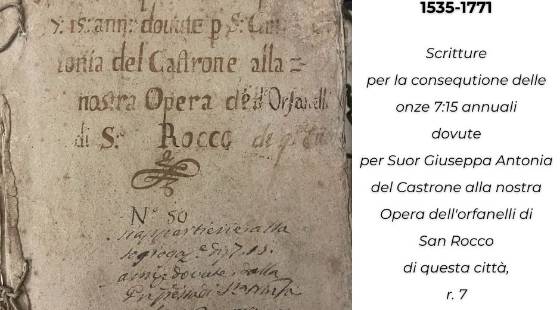 7. 15: ann: dovute p S:
tonia del Castrone alla =
nostra Opera dell'Orfanelli
di S: Rocco di
N° 50
appartiene alla
di 7. 15.
annue dovute dalla
1535-1771
Scritture
per la consequtione delle
onze 7:15 annuali
dovute
per Suor Giuseppa Antonia
del Castrone alla nostra
Opera dell'orfanelli di
San Rocco
di questa città,
r. 7